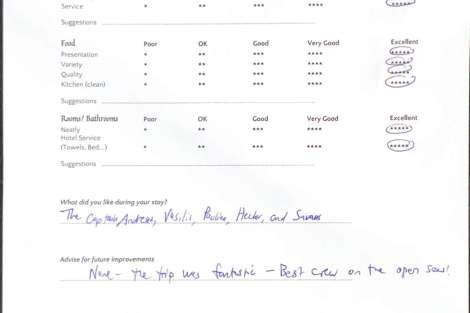 Service * ** *** **** *****
Suggestions
Food Poor OK Good Very Good Excellent
Presentation * ** *** **** *****
Variety * ** *** **** *****
Quality * ** *** **** *****
Kitchen (clean) * ** *** **** *****
Suggestions
Rooms/ Bathrooms Poor OK Good Very Good Excellent
Neatly * ** *** **** *****
Hotel Service
(Towels, Bed...) * ** *** **** *****
Suggestions
What did you like during your stay?
The Captain, Andreas, Vasilis, Pauline, Hector, and
Advise for future improvements
None - the trip was fantastic - Best crew on the open seas!